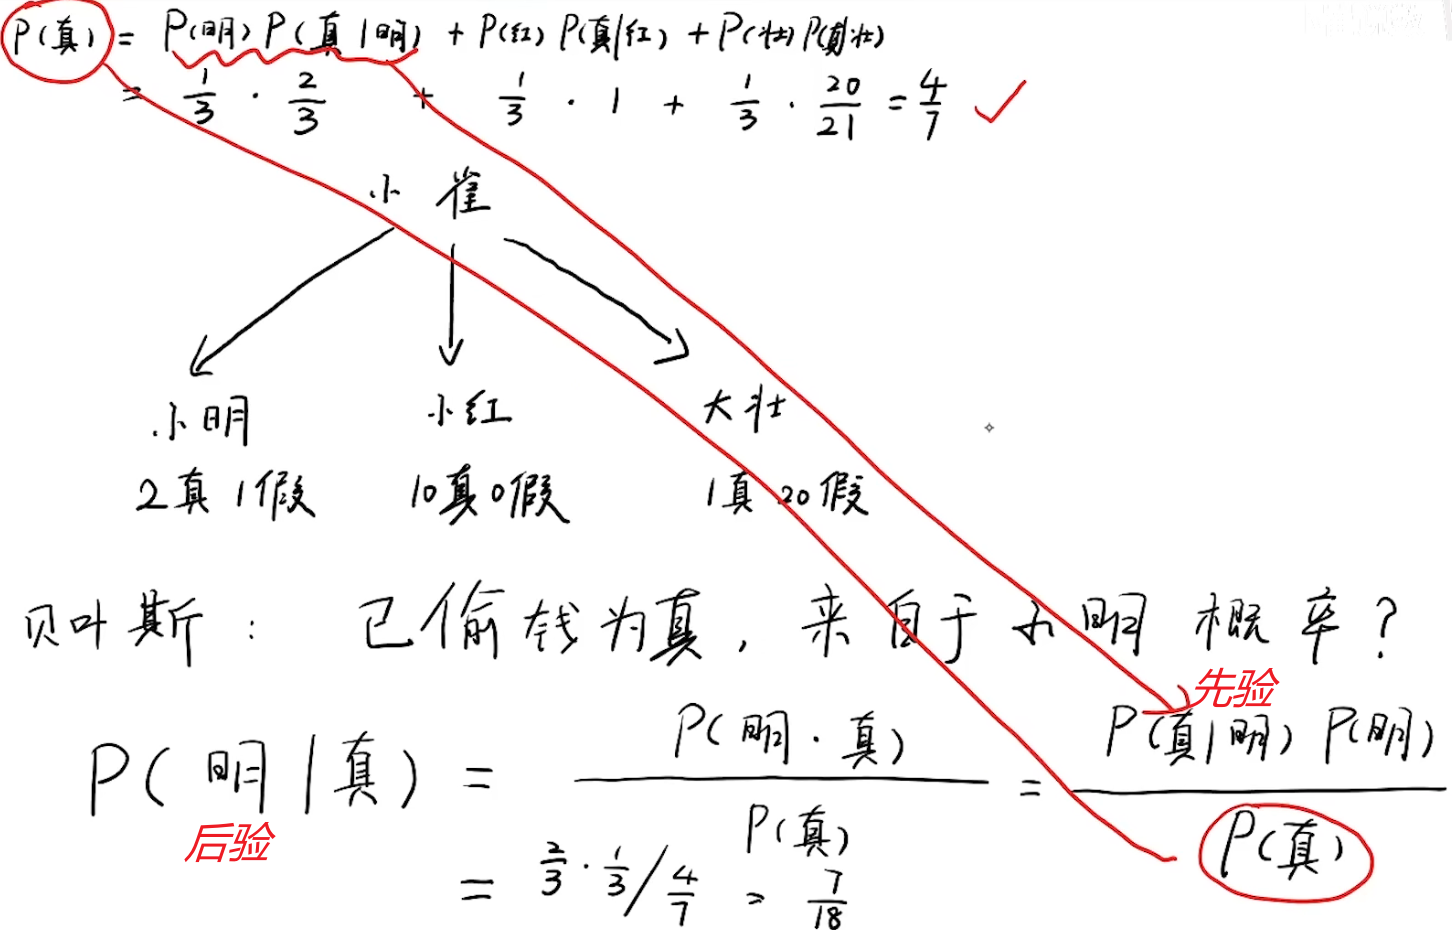 P(真) = P(明) P(真|明) + P(红) P(真|红) + P(壮) P(真|壮)
= 1/3 · 2/3 + 1/3 · 1 + 1/3 · 20/21 = 4/7 ✓
小雀
小明 小红 大壮
2真1假 10真0假 1真20假
贝叶斯: 已偷钱为真, 来自于小明概率?
先验
P(明|真) = P(明·真) / P(真) = P(真|明) P(明) / P(真)
后验
= 2/3 · 1/3 / 4/7 = 7/18